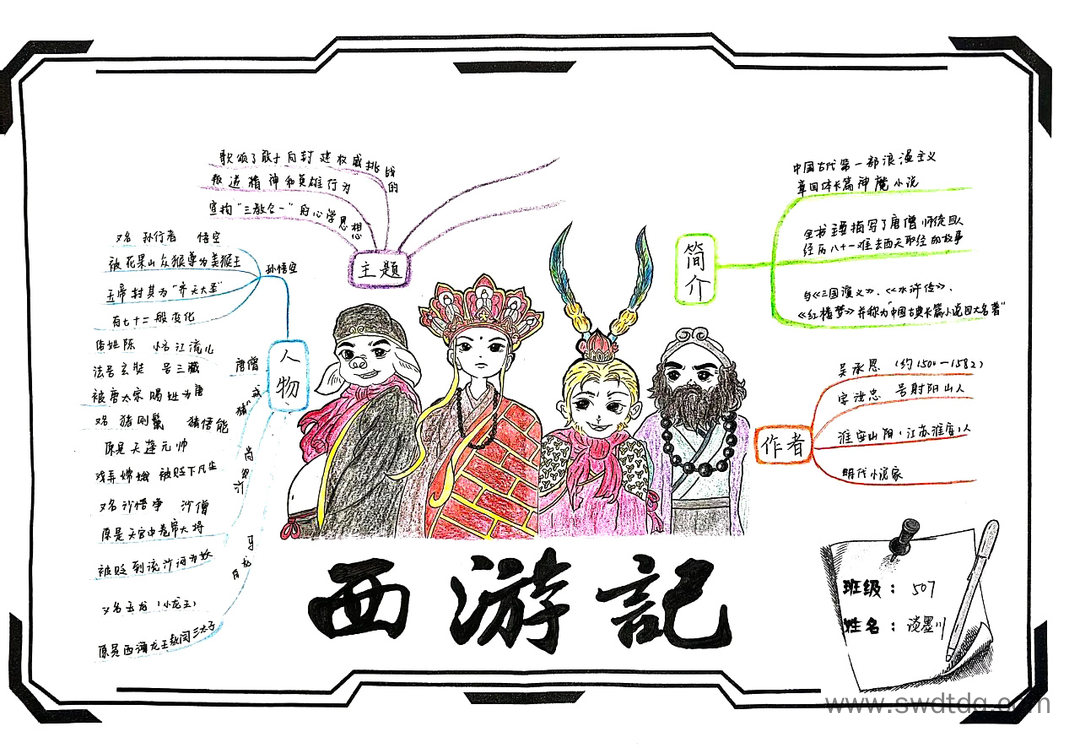 歌颂了敢于向封建权威挑战的
叛逆精神和英雄行为
宣扬“三教合一”的心学思想
主题
简介
中国古代第一部浪漫主义
章回体长篇神魔小说
全书主要描写了唐僧师徒四人
经历八十一难去西天取经的故事
与《三国演义》、《水浒传》、
《红楼梦》并称为“中国古典长篇小说四大名著”
作者
吴承恩 (约1500—1582)
字汝忠 号射阳山人
淮安山阳（江苏淮安）人
明代小说家
人物
孙悟空
又名 孙行者 悟空
被花果山众猴尊为美猴王
玉帝封其为“齐天大圣”
有七十二般变化
唐僧
俗姓陈 小名江流儿
法号玄奘 号三藏
被唐太宗赐姓为唐
又名 猪刚鬣 猪悟能
原是天蓬元帅
戏弄嫦娥 被贬下凡尘
又名沙悟净 沙僧
原是天宫中卷帘大将
被贬到流沙河为妖
又名玉龙（小龙王）
原是西海龙王敖闰三太子
西游記
班级：507
姓名：谈墨川
www.swdtdq.com